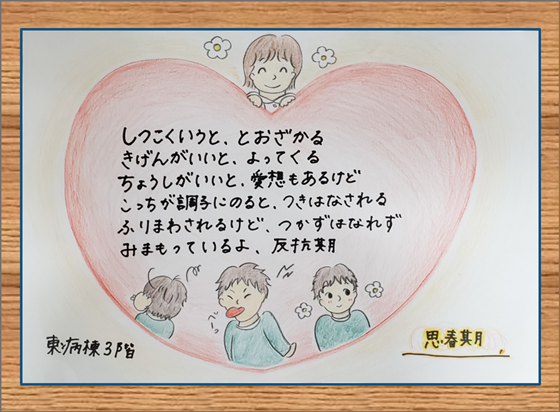 しつこくいうと、とおざかる
きげんがいいと、よってくる
ちょうしがいいと、愛想もあるけど
こっちが調子にのると、つきはなされる
ふりまわされるけど、つかずはなれず
みまもっているよ、反抗期
べーっ
東病棟3階
思春期